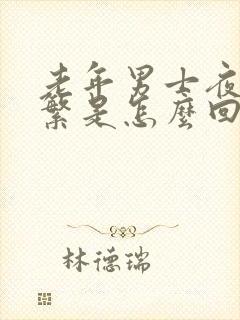 老年男士夜
繁是怎麼回
林德瑞